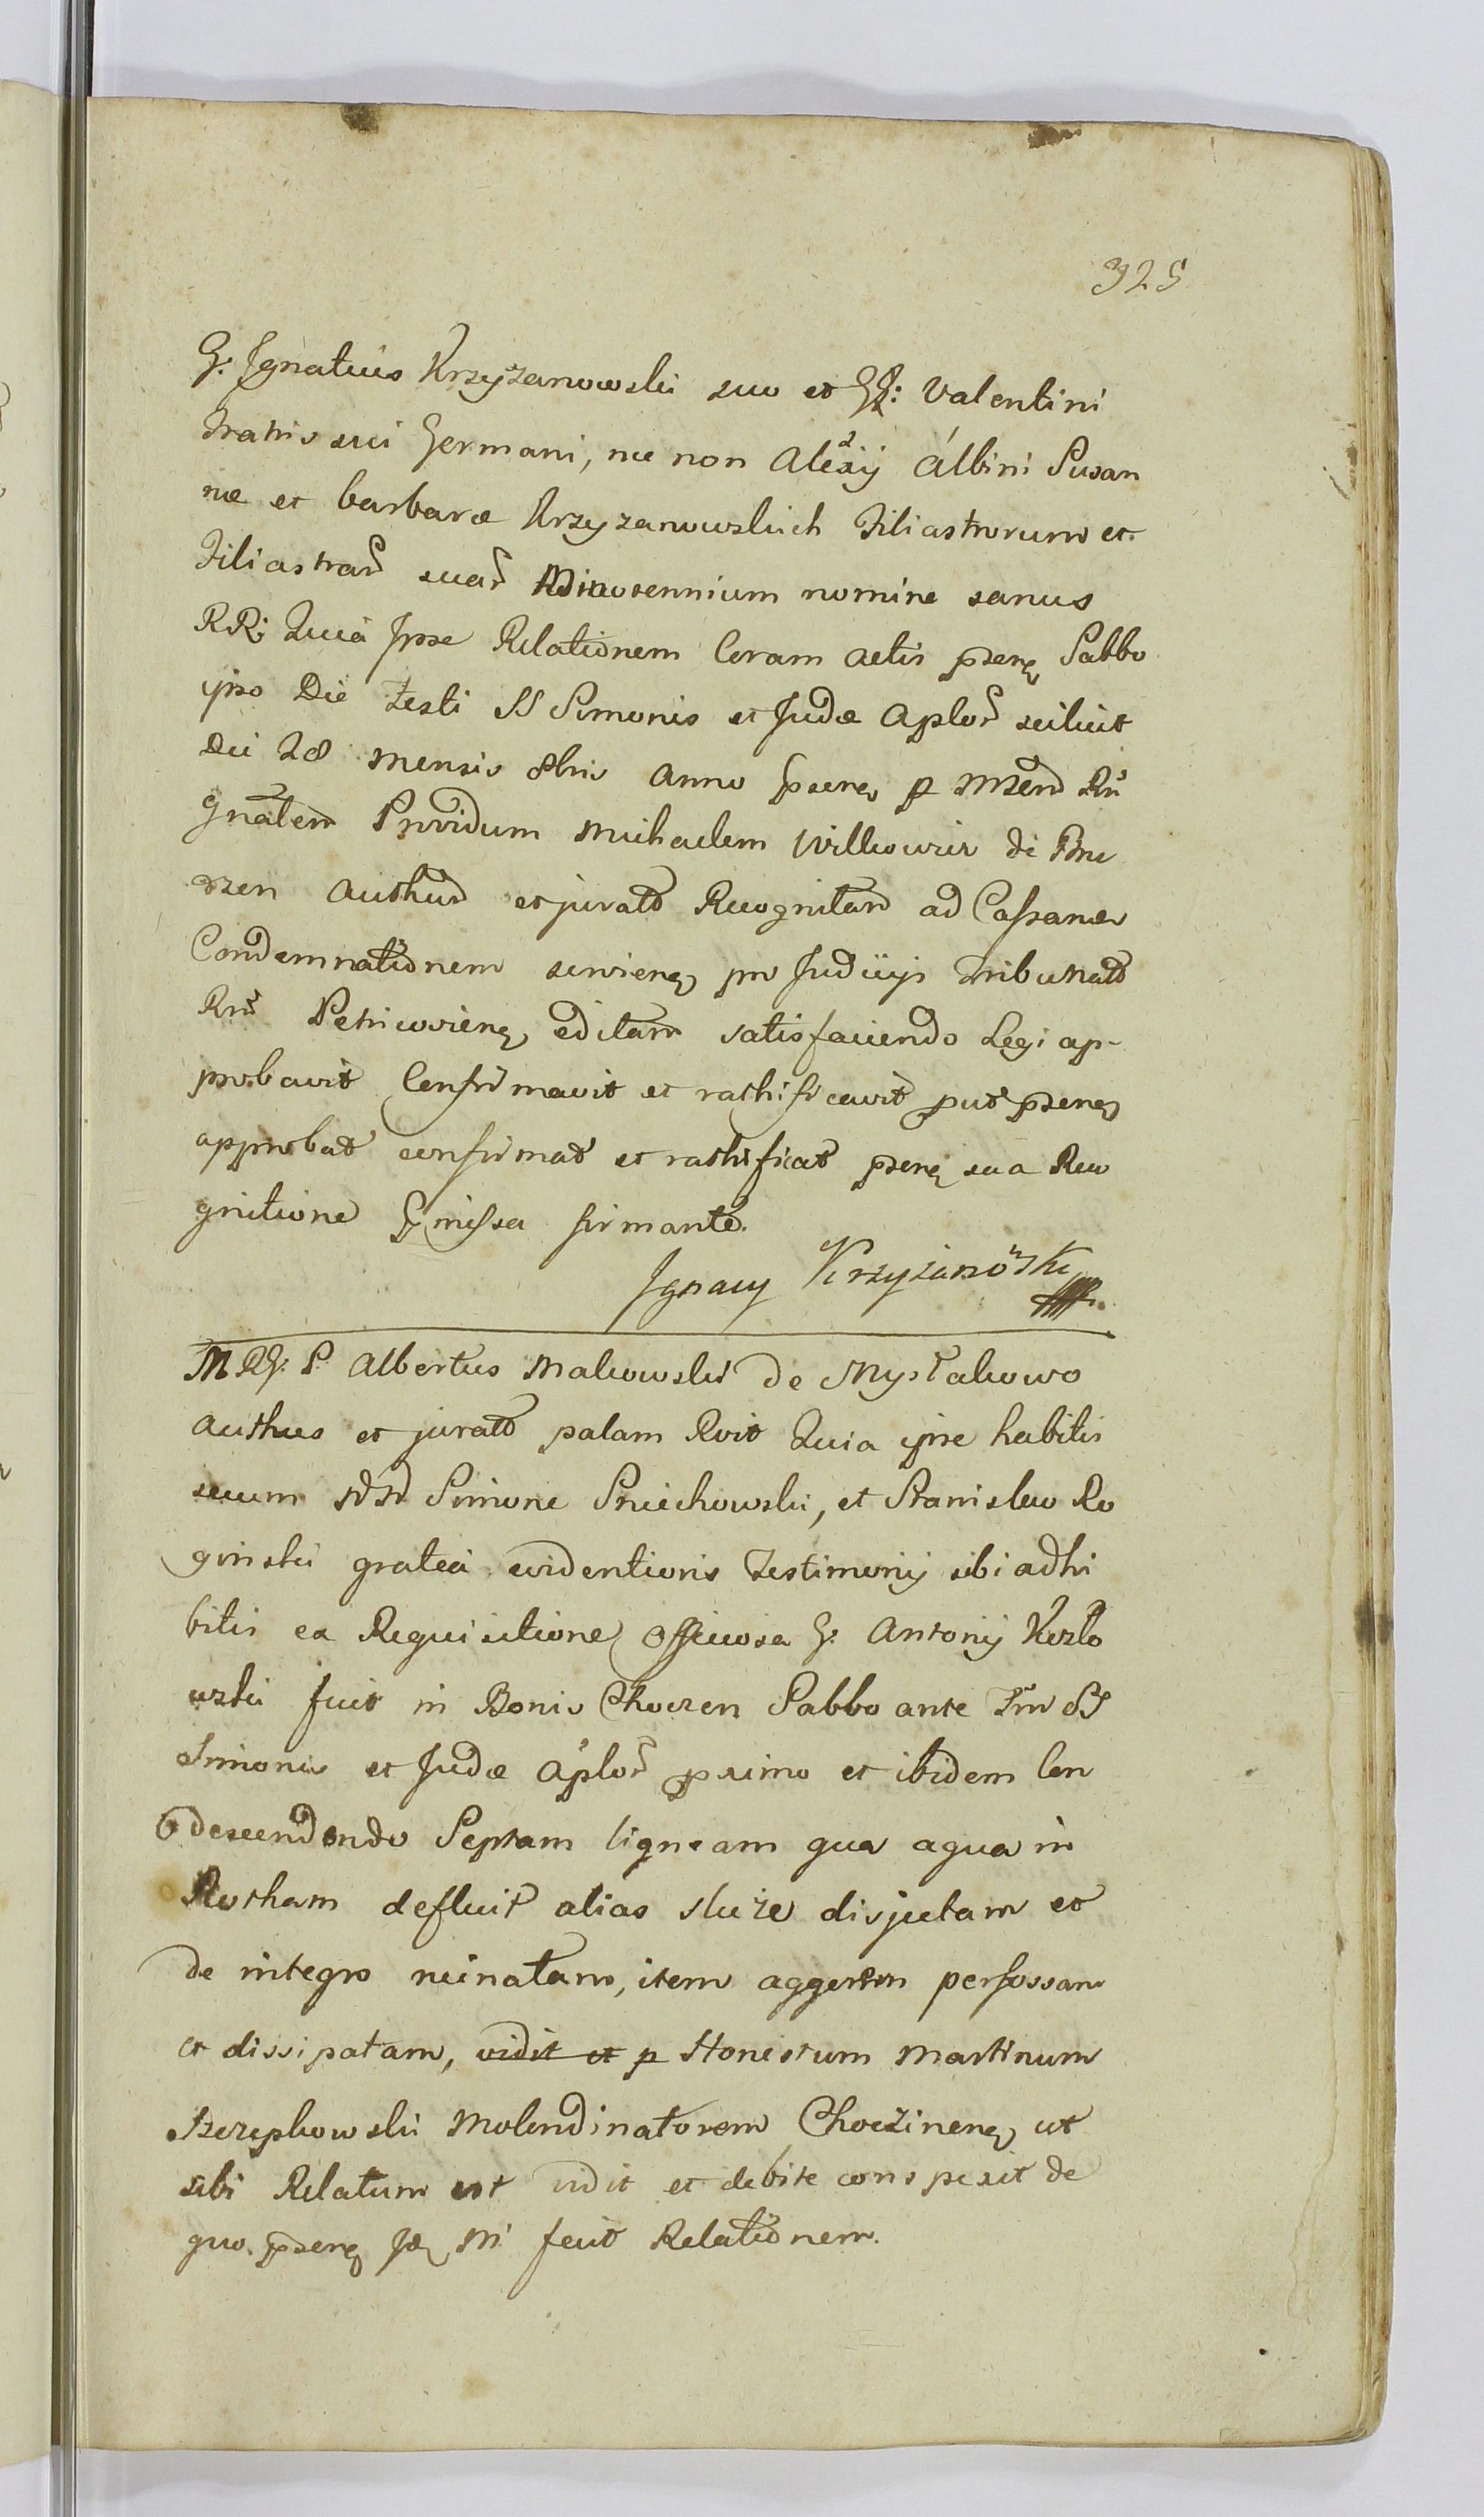 325
G. Ignatius Krzyżanowski suo et GG: Valentini
Fratris sui Germani, nec non Alexij Albini Susan
næ et barbaræ Krzyzanowskich Filiastrorum et
Filiastrar suar Minorennium nomine sanus
RR: Quia Ipse Relationem Coram actis psenq Sabbo
ipso Die Festi SS Simonis et Judæ Aplor scilicet
die 28 mensis 8bris Anno psenq p Mtem Rñ
gnalem Providum Michaelem Wilkowicz de Brze
zen Authum et juratt Recognitam ad Cassanda
Condemnationem servienq pro Judicijs Tribunalt
Rni Petricovienq editam satisfaciendo Legi ap-
probavit Confirmavit et rathificavit put psenq
approbat confirmat et rathificat psenq sua Reco
gnitione pmissa firmante.
Ignacy Krzyżanowski
M RG: P. Albertus Makowski de Mysłakowo
authus et juratt palam Rvit Quia ipse habitis
secum NN Simone Sniechowski, et Stanislao Ro
ginski gratia evidentioris Testimonij sibi adhi
bitis ex Requisitione Officiosa G. Antonij Kozło
wski fuit in Bonis Choczen Sabbo ante Fm SS
Simonis et Judæ Aplor primo et ibidem Con
descendendo Septam ligneam qua aqua in
Rotham defluit alias sluze disjectam et
de integro ruinatam, item aggerem perfossam
et dissipatam, vidit et p Honestum Martinum
Szczepkowski Molendinatorem Choczinenq ut
sibi Relatum est vidit et debite conspexit de
quo psenq M fecit Relationem.